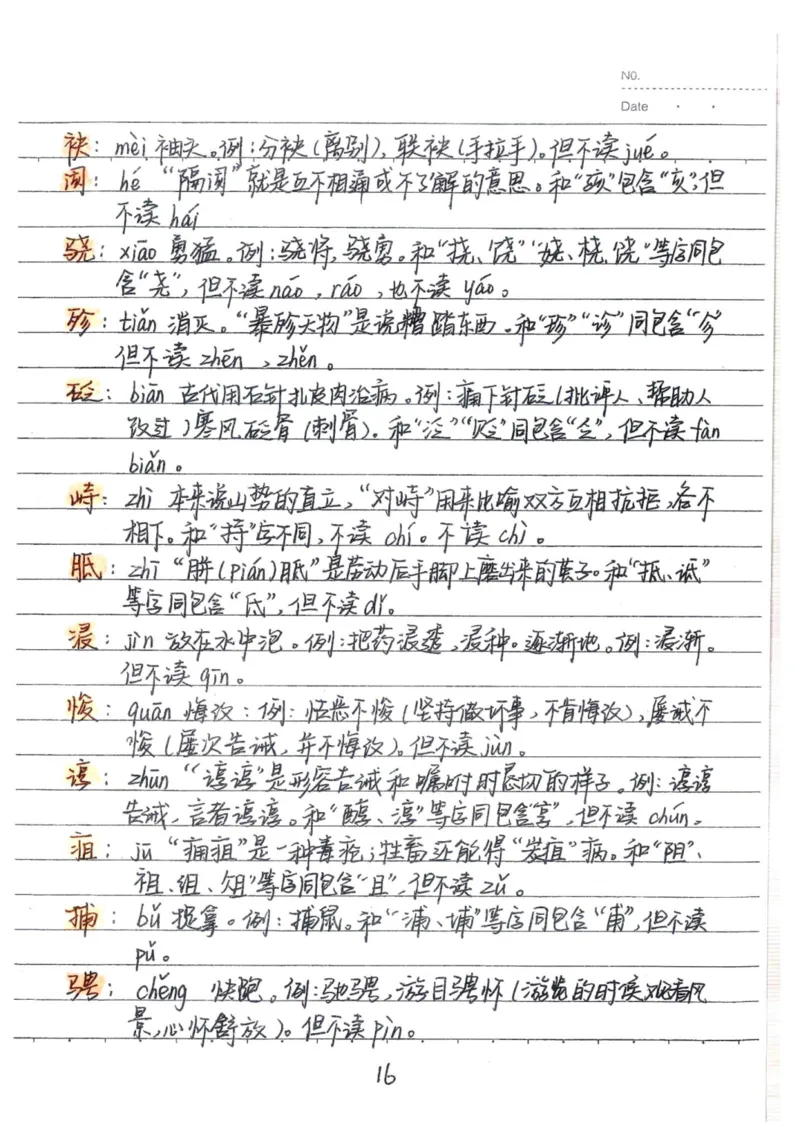 No.
Date
袂：mèi 袖头。例：分袂（离别），联袂（手拉手）。但不读jué。
阂：hé “隔阂”就是互不相通或不了解的意思。和“孩”包含“亥”，但
不读 hái
骁：xiāo 勇猛。例：骁将，骁勇。和“挠、饶”“娆、桡、饶”等字同包
含“尧”，但不读náo，ráo，也不读 yáo。
殄：tiǎn 消灭。“暴殄天物”是说糟踏东西。和“珍”“诊”同包含“㐱”
但不读 zhēn，zhěn。
砭：biān 古代用石针扎皮肉治病。例：痛下针砭（批评人、帮助人
改过）寒风砭骨（刺骨）。和“泛”“贬”同包含“乏”，但不读fàn
biǎn。
峙：zhì 本来说山势的直立，“对峙”用来比喻双方互相抗拒，各不
相下。和“持”字不同，不读 chí。不读 chì。
胝：zhī “胼（pián）胝”是劳动后手脚上磨出来的茧子。和“抵、诋”
等字同包含“氐”，但不读dǐ。
浸：jìn 放在水中泡。例：把药浸透，浸种。逐渐地。例：浸渐。
但不读 qīn。
悛：quān 悔改：例：怙恶不悛（坚持做坏事，不肯悔改），屡戒不
悛（屡次告诫，并不悔改）。但不读jùn。
谆：zhūn “谆谆”是形容告诫和嘱咐时恳切的样子。例：谆谆
告诫，言者谆谆。和“醇、淳”等字同包含“享”，但不读 chún。
疽：jū “痈疽”是一种毒疮；牲畜还能得“炭疽”病。和“阻”、
祖、组、俎”等字同包含“且”，但不读 zǔ。
捕：bǔ 捉拿。例：捕鼠。和“浦、埔”等字同包含“甫”，但不读
pǔ。
骋：chěng 快跑。例：驰骋，游目骋怀（游览的时候观看风
景，心怀舒放）。但不读pìn。
16